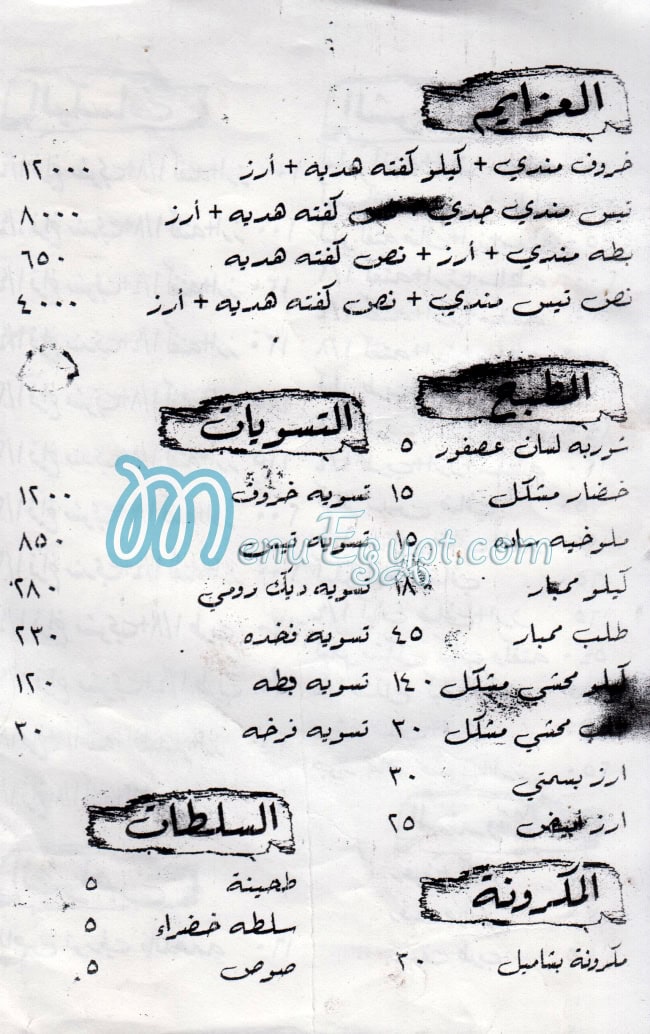 العزايم
خروف مندي + كيلو كفته هديه + أرز ١٢٠٠٠
تيس مندي جدي كفته هديه + أرز ٨٠٠٠
بطه مندي + أرز + نص كفته هديه ٦٥٠
نص تيس مندي + نص كفته هديه + أرز ٤٠٠٠
الطبيخ
شوربه لسان عصفور ٥
خضار مشكل ١٥
ملوخيه ساده ١٥
كيلو ممبار ١٨
طلب ممبار ٤٥
كيلو محشي مشكل ١٤٠
طلب محشي مشكل ٣٠
ارز بسمتي ٣٠
ارز ابيض ٢٥
المكرونة
مكرونة بشاميل ٣٠
التسويات
تسويه خروف ١٢٠٠
تسويه تيس ٨٥٠
تسويه ديك رومي ٢٨٠
تسويه فخده ٢٣٠
تسويه بطه ١٢٠
تسويه فرخه ٣٠
السلطات
طحينة ٥
سلطه خضراء ٥
صوص ٥
MenuEgypt.com